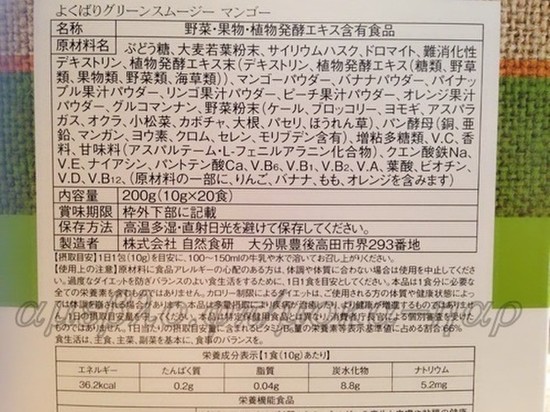 よくばりグリーンスムージー マンゴー
名称 野菜・果物・植物発酵エキス含有食品
原材料名 ぶどう糖、大麦若葉粉末、サイリウムハスク、ドロマイト、難消化性
デキストリン、植物発酵エキス末（デキストリン、植物発酵エキス（糖類、野草
類、果物類、野菜類、海草類））、マンゴーパウダー、バナナパウダー、パイナッ
プル果汁パウダー、リンゴ果汁パウダー、ピーチ果汁パウダー、オレンジ果汁
パウダー、グルコマンナン、野菜粉末（ケール、ブロッコリー、ヨモギ、アスパラ
ガス、オクラ、小松菜、カボチャ、大根、パセリ、ほうれん草）、パン酵母（銅、亜
鉛、マンガン、ヨウ素、クロム、セレン、モリブデン含有）、増粘多糖類、V.C、香
料、甘味料（アスパルテーム・L-フェニルアラニン化合物）、クエン酸鉄Na、
V.E、ナイアシン、パントテン酸Ca、V.B₆、V.B₁、V.B₂、V.A、葉酸、ビオチン、
V.D、V.B₁₂、（原材料の一部に、りんご、バナナ、もも、オレンジを含みます）
内容量 200g（10g×20食）
賞味期限 枠外下部に記載
保存方法 高温多湿・直射日光を避けて保存してください。
製造者 株式会社 自然食研 大分県豊後高田市界293番地
【摂取目安】1日1包（10g）を目安に、100～150mlの牛乳や水で溶いてお召し上がりください。
【使用上の注意】原材料に食品アレルギーの心配のある方は、体調や体質に合わない場合は使用を中止してくださ
い。過度なダイエットを防ぎバランスのよい食生活をするために、1日1食を目安としてください。本品は1食分に必要な
全ての栄養素を含むものではありません。カロリー制限によるダイエットは、ご使用される方の体質や健康状態によ
っては体調を崩す場合があります。本品は多量摂取により疾病が治癒したり、より健康が増進するものではありません。
1日の摂取目安量を守ってください。本品は特定保健用食品とは異なり、消費者庁長官による個別審査を受け
たものではありません。1日当たりの摂取目安量に含まれるビタミンB₁量の栄養素等表示基準値に占める割合：66%
食生活は、主食、主菜、副菜を基本に、食事のバランスを。
栄養成分表示【1食（10g）あたり】
エネルギー たんぱく質 脂質 炭水化物 ナトリウム
36.2kcal 0.2g 0.04g 8.8g 5.2mg
栄養機能食品